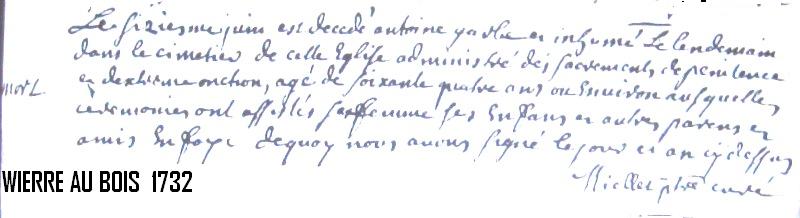 Le siziesme juin est decedé antoine et inhumé Le lendemain
dans le cimetier de cette Eglise administré des sacrements de penitence
mort
et d'extreme onction, agé de soixante quatre ans ou Environ ausquelles
ceremonies ont assistés sa femme ses Enfans et autres parens et
amis En foye dequoy nous avons signé le jour et an cydessus
ptre curé
WIERRE AU BOIS 1732